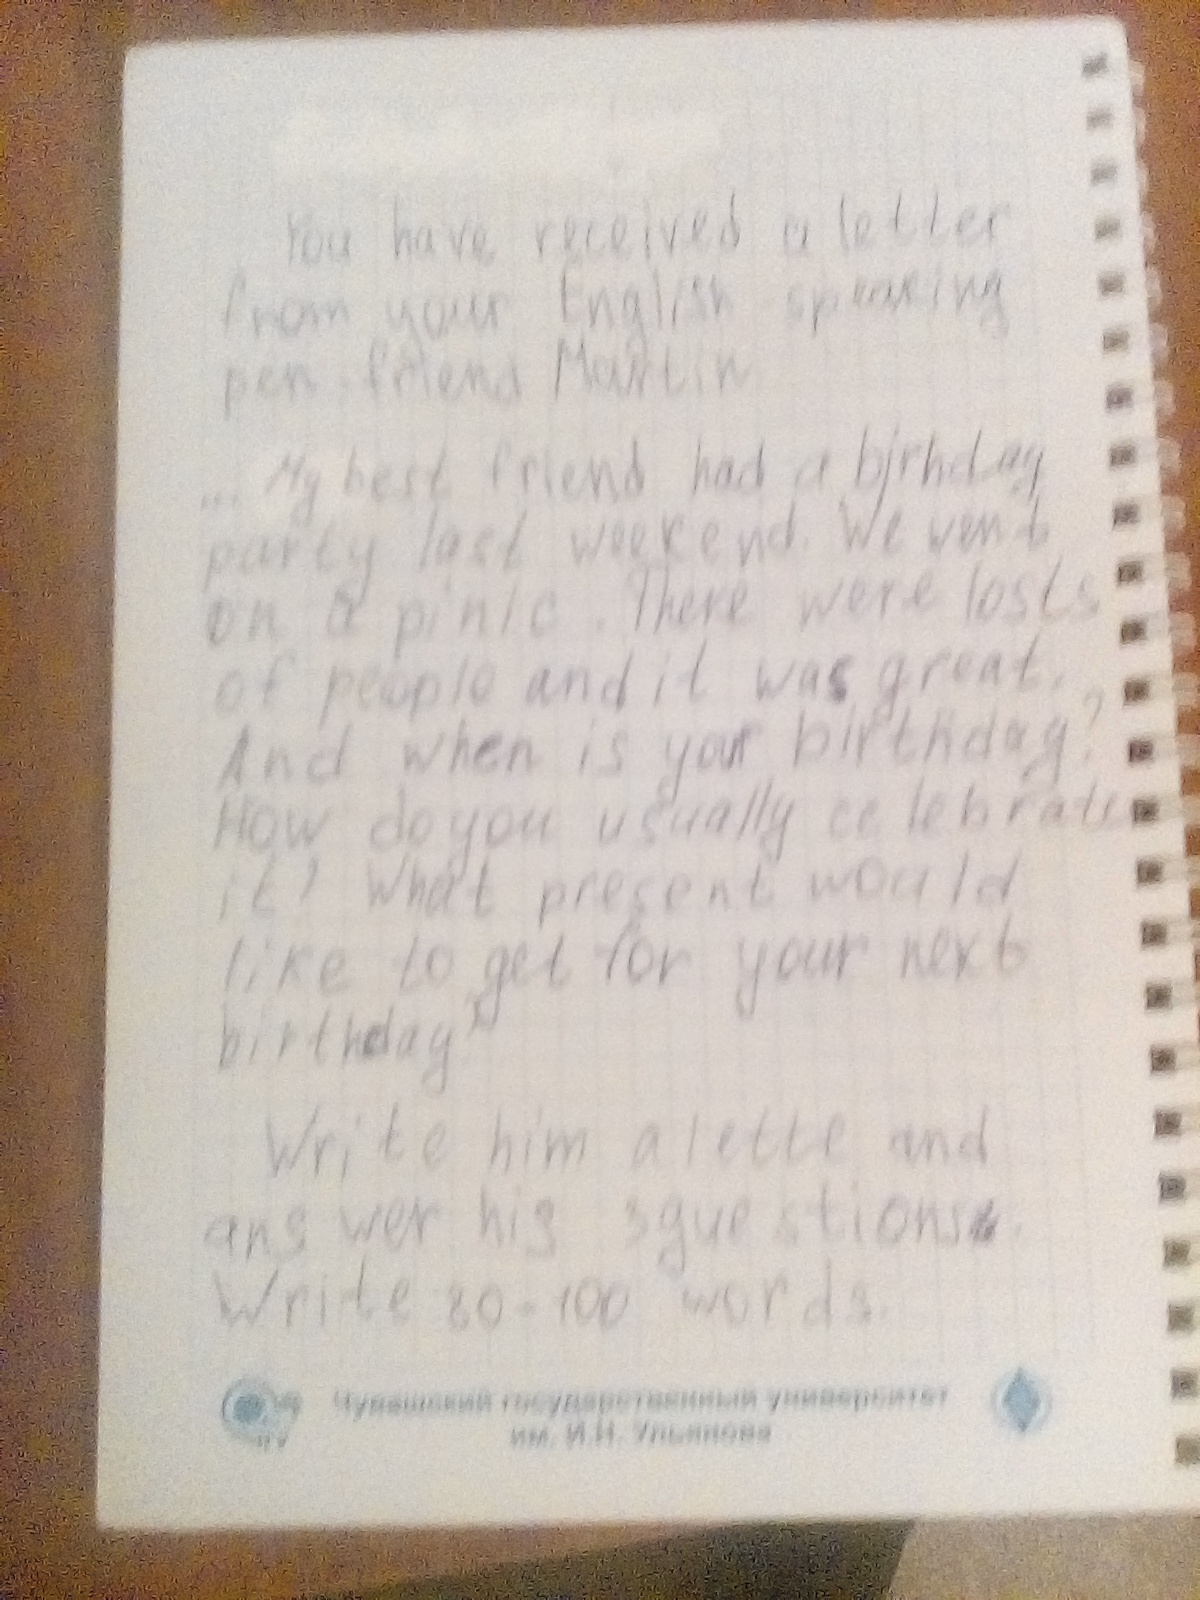 You have received a letter
from your English speaking
pen-friend Martin
... My best friend had a birhday
party last weekend. We went
on a pinic. There were losts
of people and it was great.
And when is your birthday?
How do you usually celebrate
it? What present would
like to get for your next
birthday?
Write him a lette and
answer his 3questions.
Write 80-100 words.
Чувашский государственный университет
им. И.Н. Ульянова